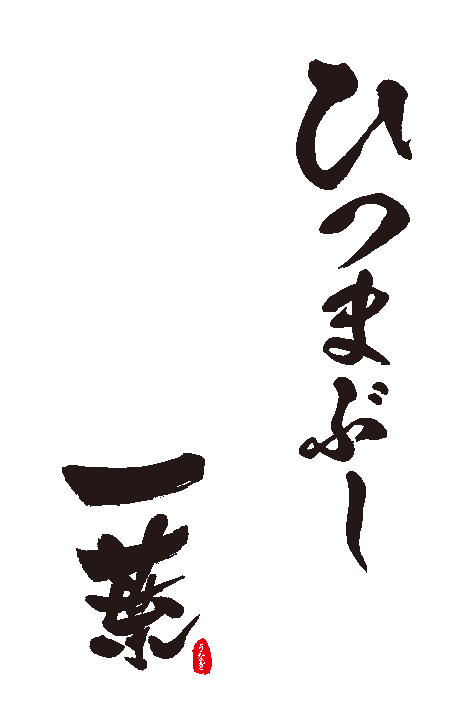 ひつまぶし
一葉
うなぎ